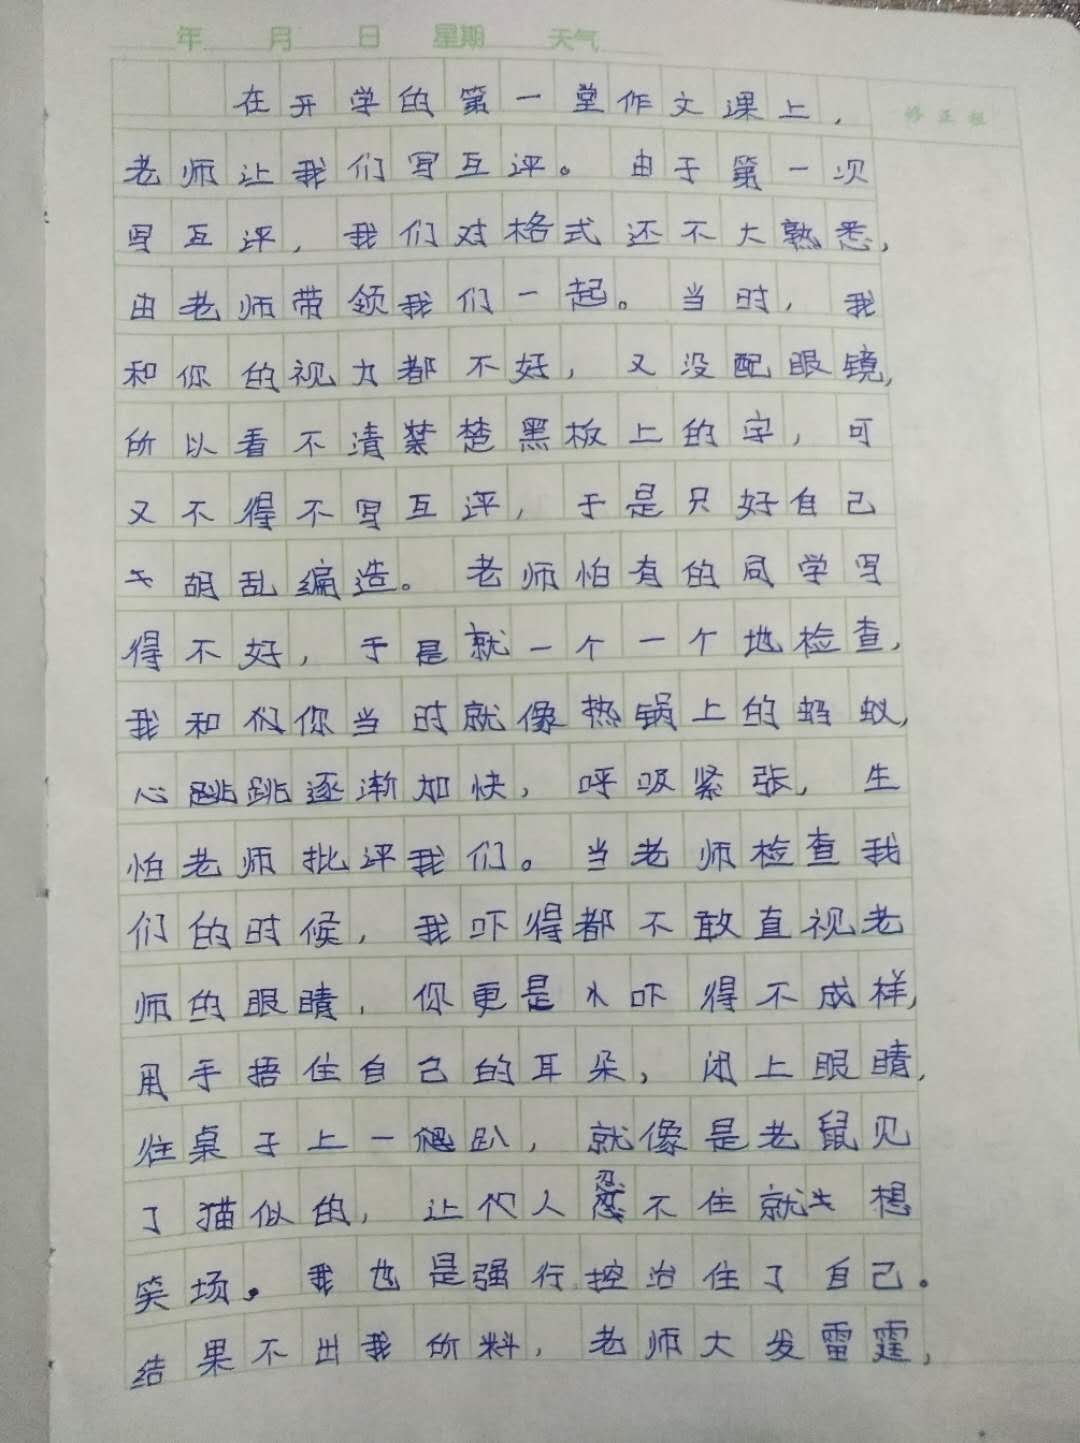 年 月 日 星期 天气
修正栏
在开学的第一堂作文课上，
老师让我们写互评。由于第一次
写互评，我们对格式还不大熟悉，
由老师带领我们一起。当时，我
和你的视力都不好，又没配眼镜，
所以看不清楚黑板上的字，可
又不得不写互评，于是只好自己
胡乱编造。老师怕有的同学写
得不好，于是就一个一个地检查，
我和你当时就像热锅上的蚂蚁，
心跳逐渐加快，呼吸紧张，生
怕老师批评我们。当老师检查我
们的时候，我吓得都不敢直视老
师的眼睛，你更是吓得不成样，
用手捂住自己的耳朵，闭上眼睛，
往桌子上一趴，就像是老鼠见
了猫似的，让人忍不住就想
笑场。我也是强行控治住了自己。
结果不出我所料，老师大发雷霆，